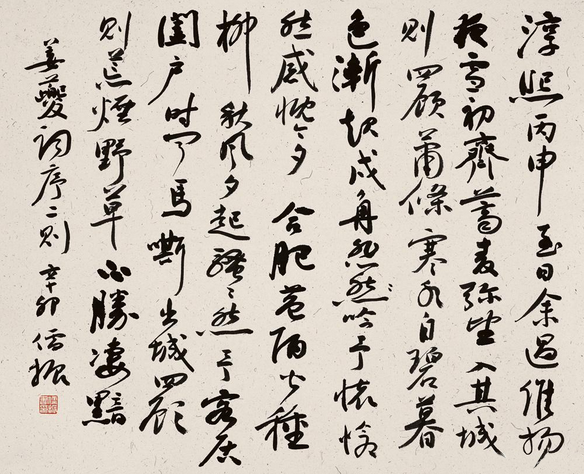 淳熙丙申至日余過維揚
夜雪初霽薺麥彌望入其城
則四顧蕭條寒水自碧暮
色漸起戍角悲然吟予懷愴
然感慨今夕 合肥巷陌皆種
柳秋風夕起騷〻然予客居
闔戶時聞馬嘶出城四顧
則荒煙野草不勝淒黯
姜夔詞序二則 辛卯 儒振